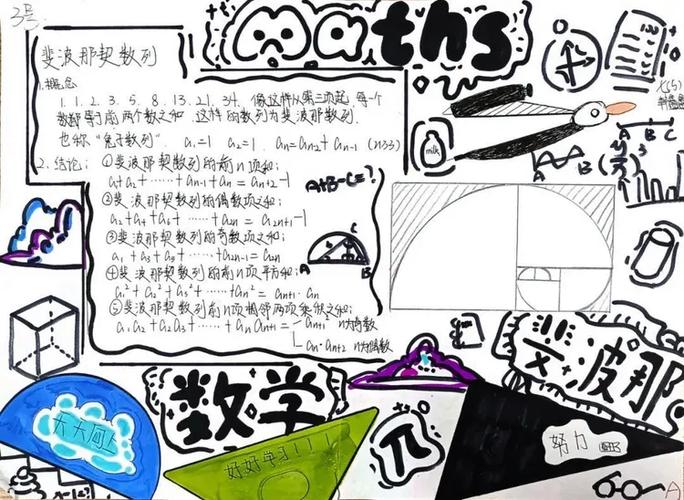 3号
maths
斐波那契数列
1.概念
1. 1. 2. 3. 5. 8. 13. 21. 34. 像这样从第三项起,每一个
数都等于前两个数之和.这样的数列为斐波那契数列.
也称"兔子数列". a₁=1 a₂=1. aₙ=aₙ₋₂+aₙ₋₁ (n≥3)
2. 结论:①斐波那契数列的前n项和:
a₁+a₂+……+aₙ₋₁+aₙ=aₙ₊₂-1
②斐波那契数列的偶数项之和:
a₂+a₄+a₆+……+a₂ₙ=a₂ₙ₊₁-1
③斐波那契数列的奇数项之和:
a₁+a₃+a₅+……+a₂ₙ₋₁=a₂ₙ
④斐波那契数列的前n项平方和:
a₁²+a₂²+a₃²+……+aₙ²=aₙ₊₁·aₙ
⑤斐波那契数列前n项相邻两项乘积之和:
a₁a₂+a₂a₃+……+aₙaₙ₊₁=
aₙ₊₁² n为奇数
aₙ·aₙ₊₂ n为偶数
A+B-C=?
C
A
B
milk
A B C
A
B
斐波那
数学
π
天天向上
好好学习!!!
努力
A